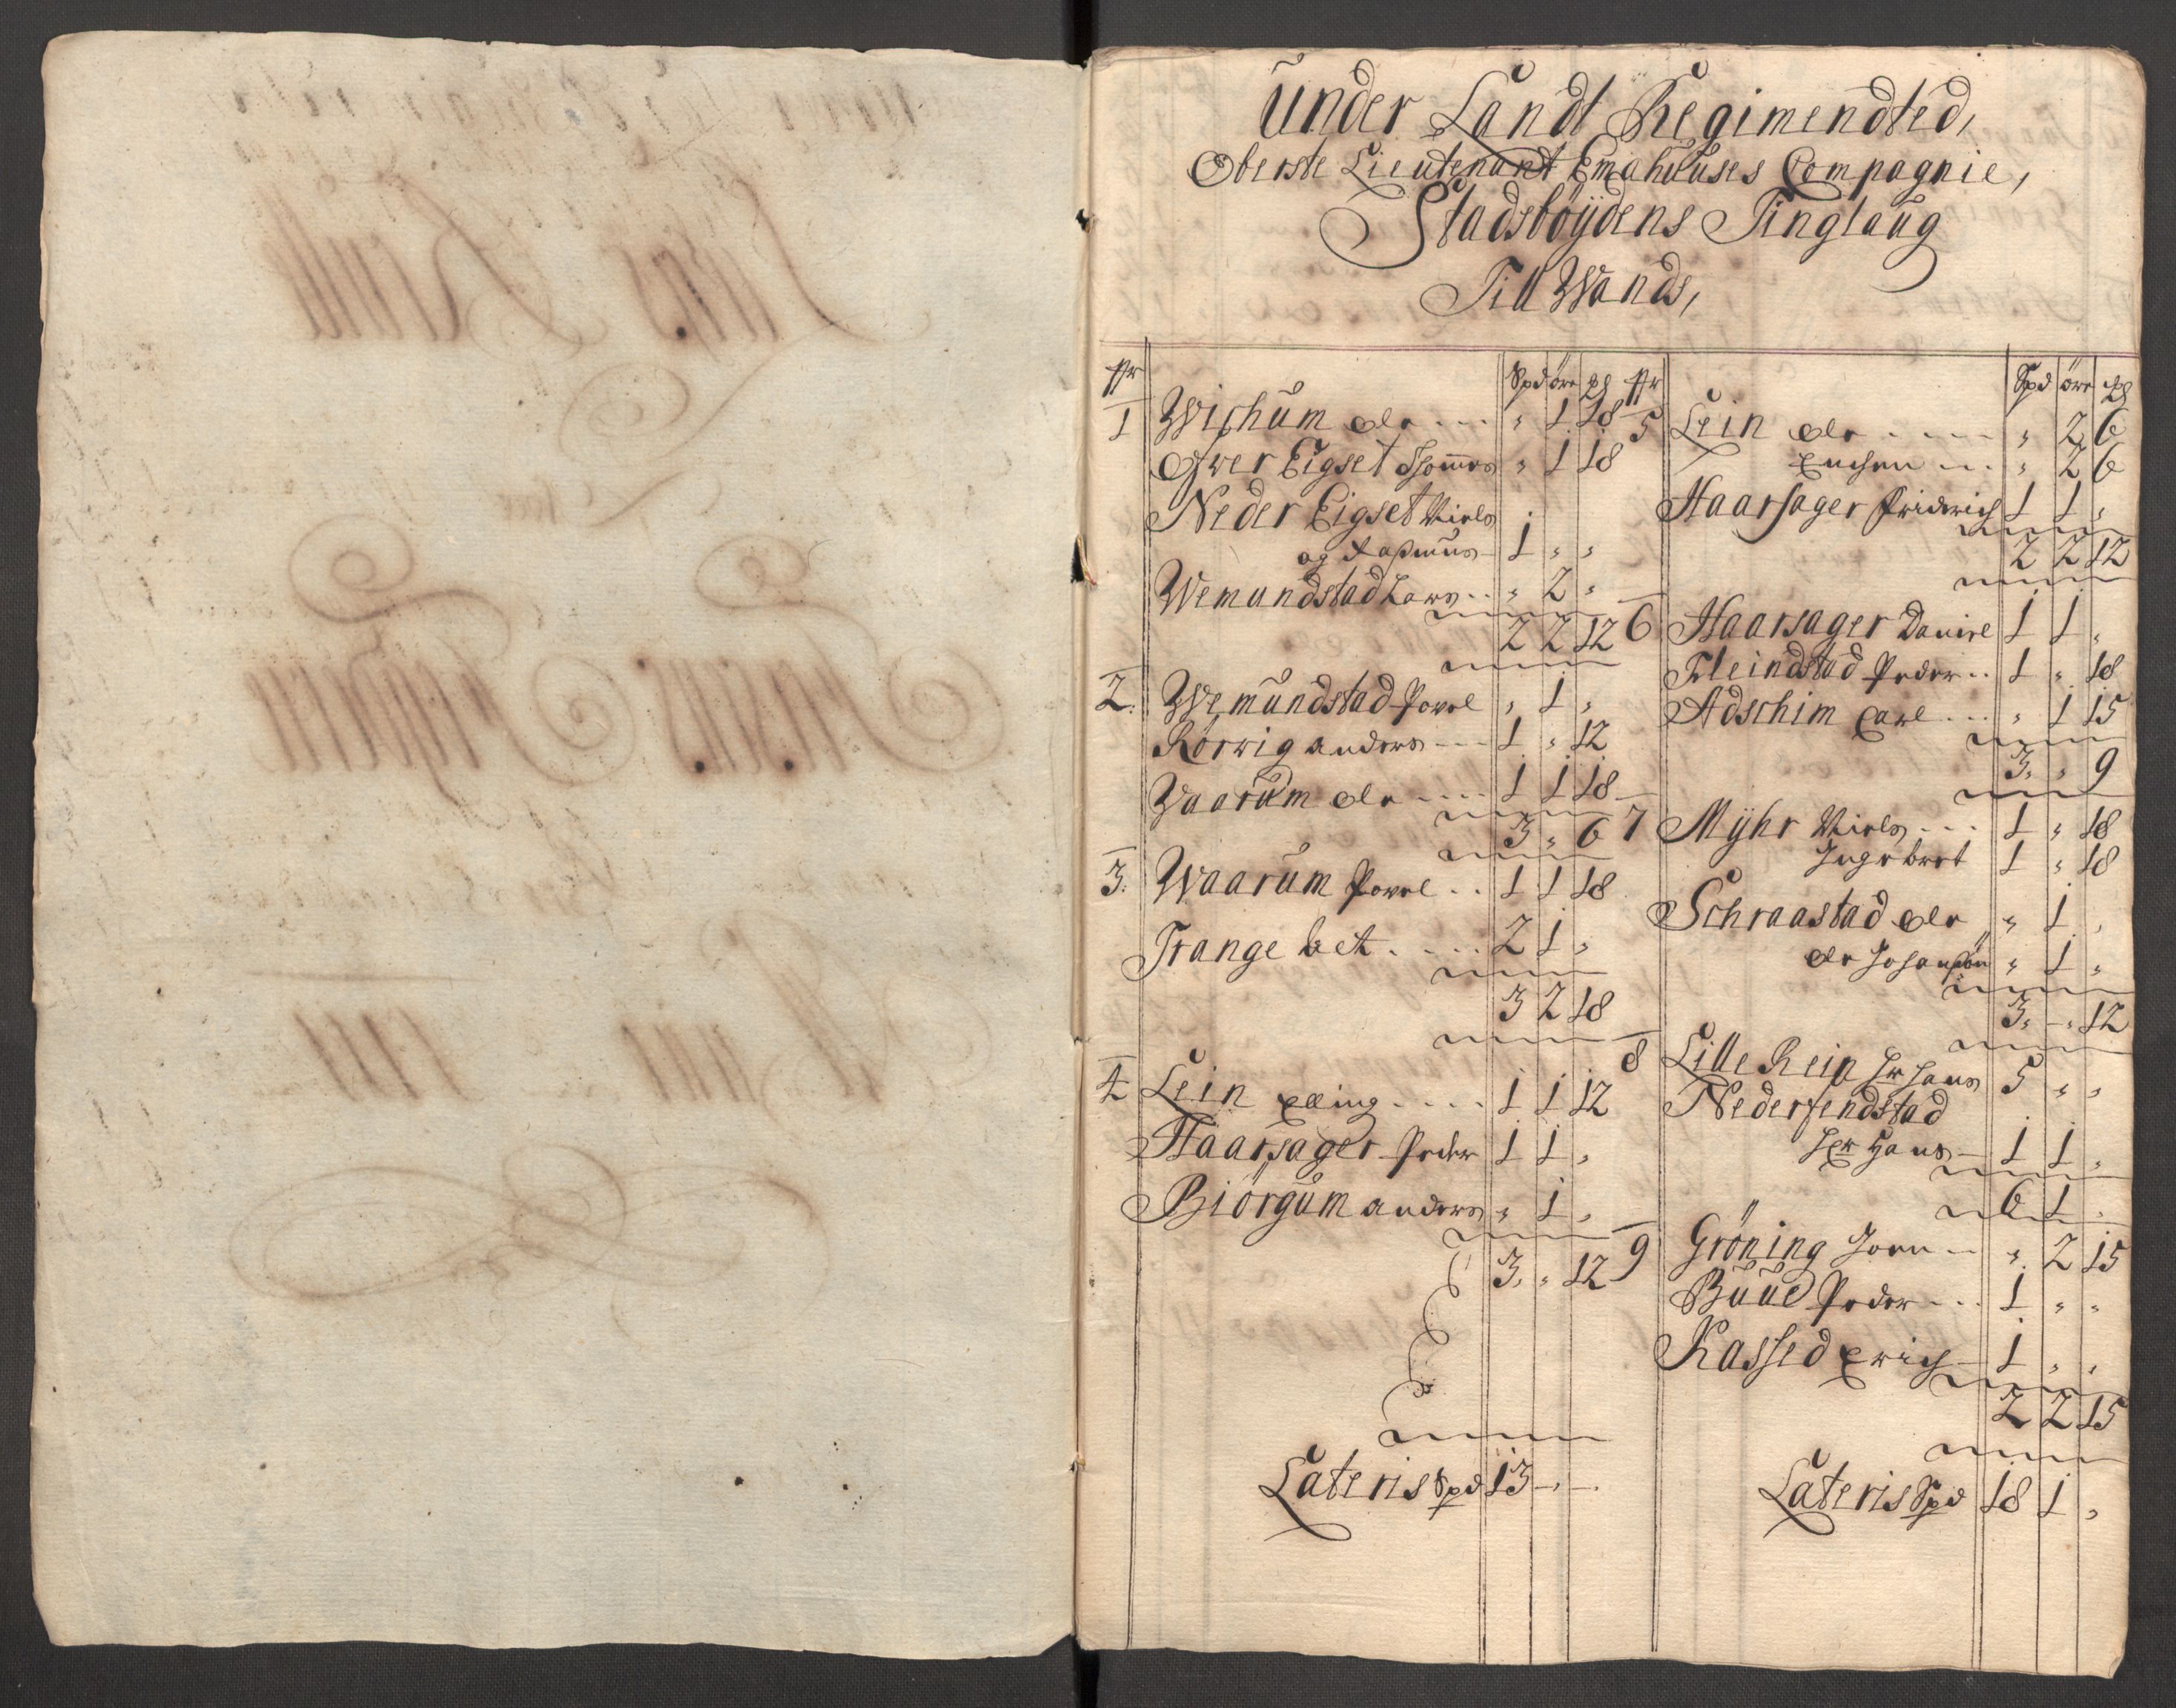 Under Landt Regimendted,
Oberste Lieutenant Emahuuses Compagnie,
Stadsböÿdens Tinglaug
Till Wands,
Nr Spd öre
1 Wishum Ole .... " 1 18
Øfver Eigset Thommes " 1 18
Neder Eigset Niels
og Rasmus 1 " "
Wemundstad Lars .. " 2 "
2 2 12
2. Wemundstad Povel " 1 "
Rörwig Anders --- 1 " 12
Waarum Ole .... 1 1 18
3 " 6
3. Waarum Povel .. 1 1 18
Trangelet ..... 2 1 "
3 2 18
4 Lein Elling .... 1 1 12
Haarsager Peder 1 1 "
Biörgum Anders " 1 "
3. " 12
Lateris Spd 13 - -
Nr Spd öre
5 Lein Ole .... " 2 6
" 2 6
Haarsager Friderich 1 1 "
2 2 12
6 Haarsager Daniel 1 1 "
Fleindstad Peder .. 1 " 18
Adschim Carl ... " 1 15
3. " 9
7 Mÿhr Niels ... 1 " 18
Ingebret 1 " 18
Schraastad Ole " 1 "
Ole Johansön " 1 "
3. - " 12
8 Lille Rein Hr Hans 5 " "
Nederfendstad
Hr Hans - 1 1 "
6 1 "
9 Gröning Joen -- " 2 15
Buud Peder ... 1 " "
Rassed Erich - 1 " "
2 2 15
Lateris Spd 18 1 "